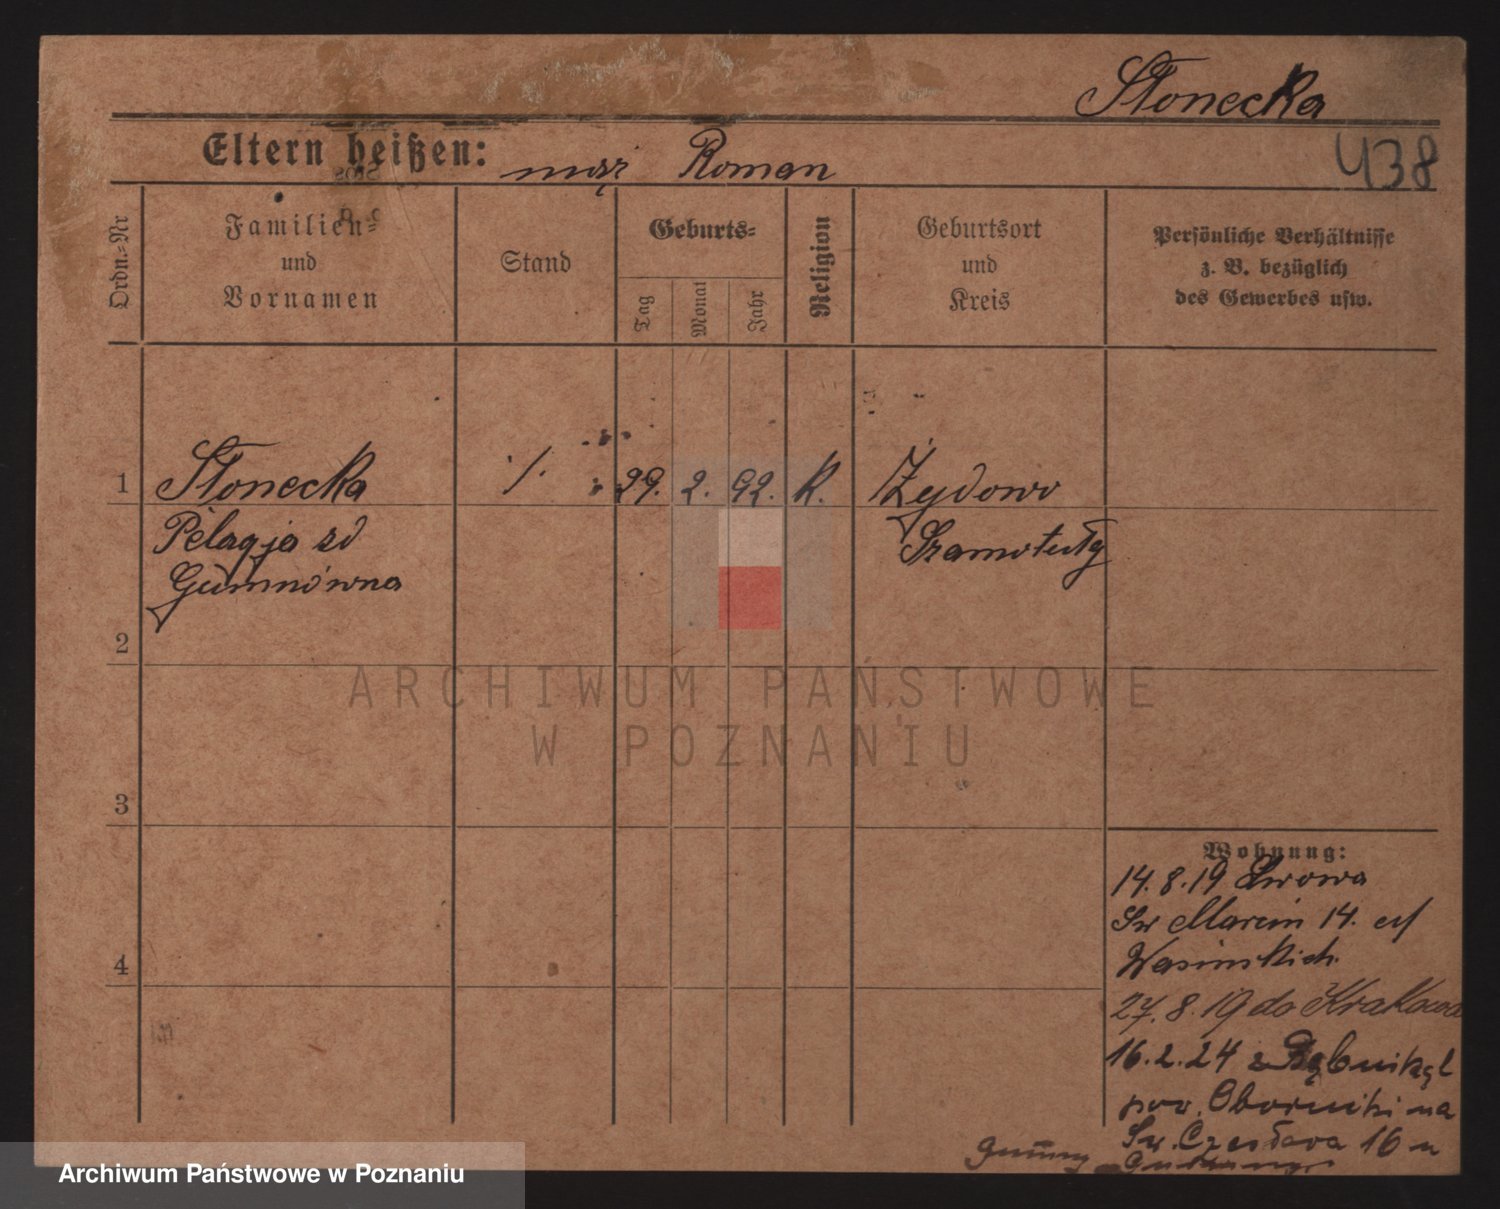 Słonecka
Eltern heißen: mąż Roman
438
Ordn.=Nr
Familien=
und
Vornamen
Stand
Geburts=
Tag
Monat
Jahr
Religion
Geburtsort
und
Kreis
Persönliche Verhältnisse
z. B. bezüglich
des Gewerbes usw.
1 Słonecka ./. 29. 2. 92. K. Żydowo
Pelagja zd Szamotuły
Gumnówna
2
ARCHIWUM PAŃSTWOWE
W POZNANIU
3
4
Wohnung:
14.8.19 Lwowa
Św Marcin 14.
Wasinskich.
27.8.19 do Krakowa
16.2.24 z
pow. Oborniki na
Św. Czesława 16 u
Gumny
Archiwum Państwowe w Poznaniu